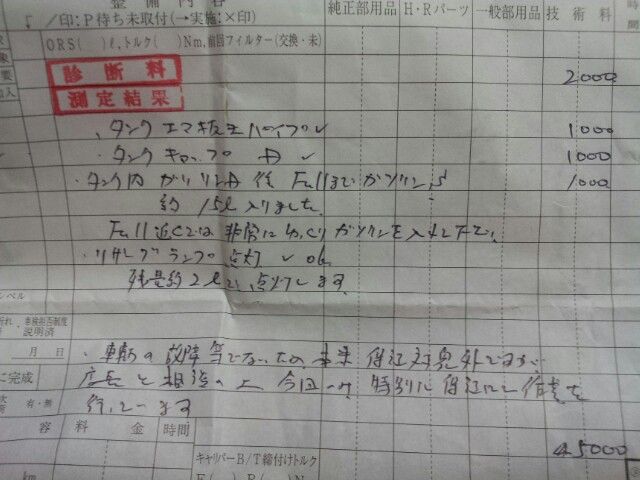 整備内容
✓/印:P待ち未取付(→実施:×印) 純正部用品 H・Rパーツ 一般部用品 技術料
ORS( )ℓ,トルク( )Nm,前回フィルター(交換・未)
診断料 2000
測定結果
、タンク エア抜きパイプ ✓ 1000
・タンクキャップ ✓ 1000
・タンク内ガソリン 後 Fullまでガソリン 1000
約15ℓ入りました。
Full近くでは非常にゆっくりガソリンを入れて下さい
・リザーブランプ点灯 ✓ ok
残量約2ℓで点灯します
車検拒否制度
説明済
月 日
・車両の故障等でないため本来保証対象外ですが
完成 店長と相談の上今回のみ特別に保証にて作業を
有・無 行って ます
容 料金 時間
45000
キャリパーB/T締付けトルク
km F( )R( )N